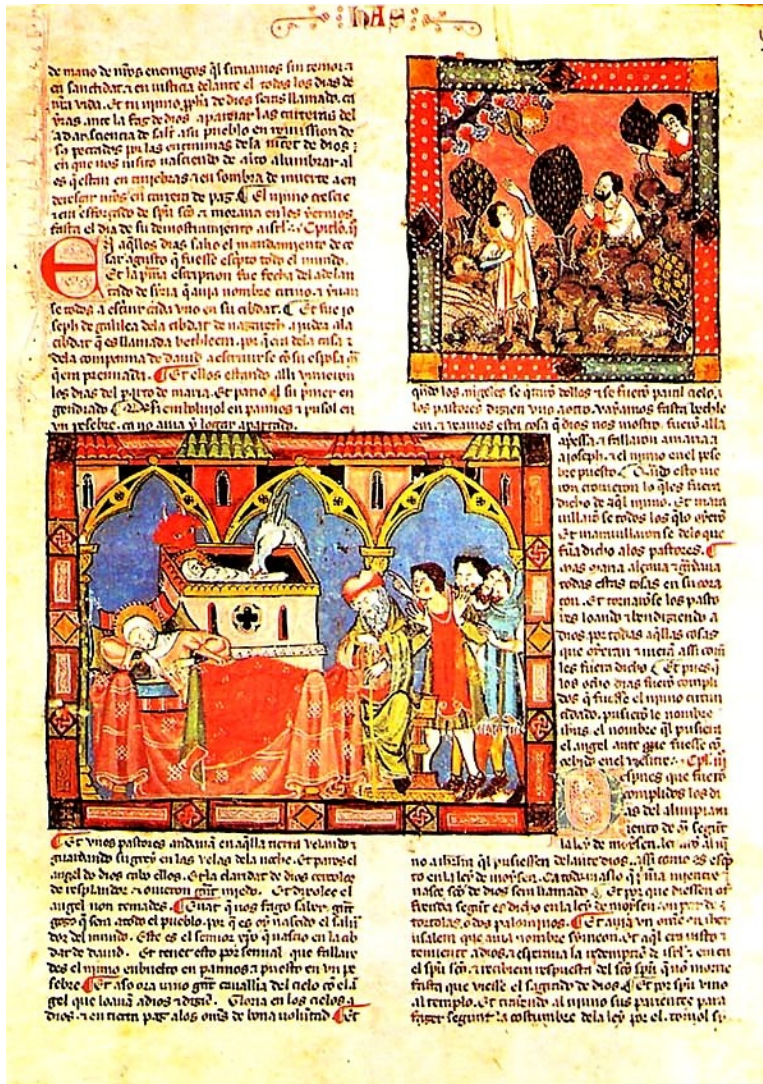 has
de mano de nr̃os enemigos q̃l siruamos sin temor ⁊
en sanctidat ⁊ en iusticia delante el todos los dias de
nr̃a vida. Et tu ninno, ppħa de dios seras llamado. ca
yras ante la faz de dios aparejar las carreras del
a dar sciencia de salut a su pueblo en remission de
en que nos uisito nasciendo de alto alumbrar al
os q̃ estan en tiniebras ⁊ en sombra de muerte a en
dereçar nr̃os en carrera de paz. El nino crescie
⁊ era esforçado de sp̃u sc̃o ⁊ moraua en los yermos
fasta el dia de su demostramiento a isrl. Capitlo. ij
En aq̃llos dias salio el mandamiento de ce
sar agusto q̃ fuesse escpto todo el mundo.
Et la p̃ma escripcion fue fecha del adelan
tado de siria q̃ auia nombre cirino. ⁊ yuan
se todos a escriuir cada vno en su cibdat. Et fue jo
seph de galilea dela cibdat de nazareth a judea ala
cibdat q̃ es llamada bethleem. por q̃ era dela casa ⁊
dela companna de dauid a escriuirse cõ su esposa m̃
q̃ era prennada. Et ellos estando alli uinieron
los dias del parto de maria. Et pario el su primer en
gendrado ⁊ enboluiol en pannos ⁊ pusol en
vn pesebre. ca no auia y logar apartado.
Et vnos pastores andauan en aq̃lla tierra velando ⁊
guardando su grey en las velas dela noche. Et paros el
angel de dios cabo ellos. Et la claridat de dios cercolos
de resplandor ⁊ ouieron grãt miedo. Et dixoles el
angel non temades. Euat q̃ uos fago saber grãt
gozo q̃ sera a todo el pueblo. por q̃ es oy nascido el salua
dor del mundo. Este es el sennor xp̃o q̃ nascio en la cib
dat de dauid. Et tenet esto por sennal. que fallare
des el ninno enbuelto en pannos ⁊ puesto en vn pe
sebre. Et a so ora uino grãt caualleria del cielo cõ el ã
gel que loauan a dios ⁊ dizien. Gloria en los cielos a
dios. ⁊ en tierra paz alos om̃s de bona voluntad. Et
quãdo los angeles se q̃taro dellos ⁊ se fuerõ para el cielo,
los pastores dizien vno a otro. vayamos fasta bethle
em. ⁊ veamos esta cosa q̃ dios nos mostro. fuerõ alla
apriessa. ⁊ fallaron a maria ⁊
a joseph. ⁊ el ninno en el pese
bre puesto. Quãdo esto vie
ron conocieron lo q̃ les fuera
dicho de aq̃l nino. Et mara
uillarõ se todos los q̃ lo oyerõ
Et marauillaron se delo que
fuera dicho alos pastores.
mas maria alçaua ⁊ guardaua
todas estas cosas en su cora
çon. Et tornarõse los pasto
res loando ⁊ bendiziendo a
dios por todas aq̃llas cosas
que oyeran ⁊ uieran assi com̃
les fuera dicho. Et pues q̃
los ocho dias fuerõ compli
dos q̃ fuesse el nino circun
cidado. pusierõ le nombre
ihus. el nombre q̃l pusiera
el angel ante que fuesse cõ
cebido en el uientre. Cpl. iij
Despues que fuerõ
complidos los di
as del alimpiami
ento de m̃ segũt
la ley de moysen. leuarõ al ni
no a ihrlm q̃l pusiessen delante dios. assi como es escp
to en la ley de moysen. Ca todo maslo q̃ p̃mera mientre
nasce sc̃o de dios sera llamado. Et por que diessen of
frenda segũt es dicho en la ley de moysen un par de
tortolas. o dos palominos. Et auia vn omne en iher
usalem que auia nombre symeon. Et aq̃l era iusto ⁊
temiente a dios. ⁊ esperaua la redempcõ de isrl. ⁊ era en
el sp̃u sc̃o. ⁊ recibiera respuesta del sc̃o sp̃u q̃ no morrie
fasta que uiesse el sagrado de dios. Et por sp̃u vino
al templo. Et trayendo al nino sus parientes para
fazer segunt la costumbre dela ley por el. tomol sy-